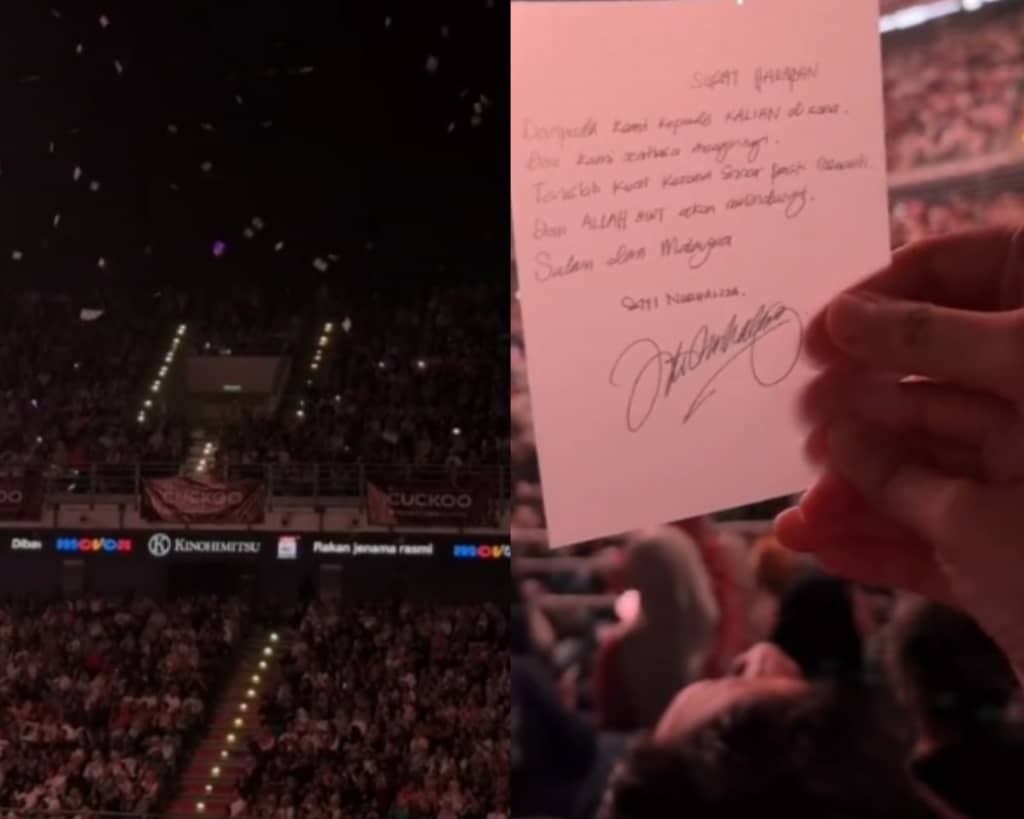 OO
CUCKOO
CUCKOO
Diban
movon
KINOHIMITSU
Rakan jenama rasmi
SURAT HARAPAN
Daripada kami kepada KALIAN di sana.
Dan kami sentiasa mengiringi.
Tabahlah Kuat Kerana Sinar pasti
Dan ALLAH SWT akan melindungi.
Salam dari Malaysia
SITI NURHALIZA.